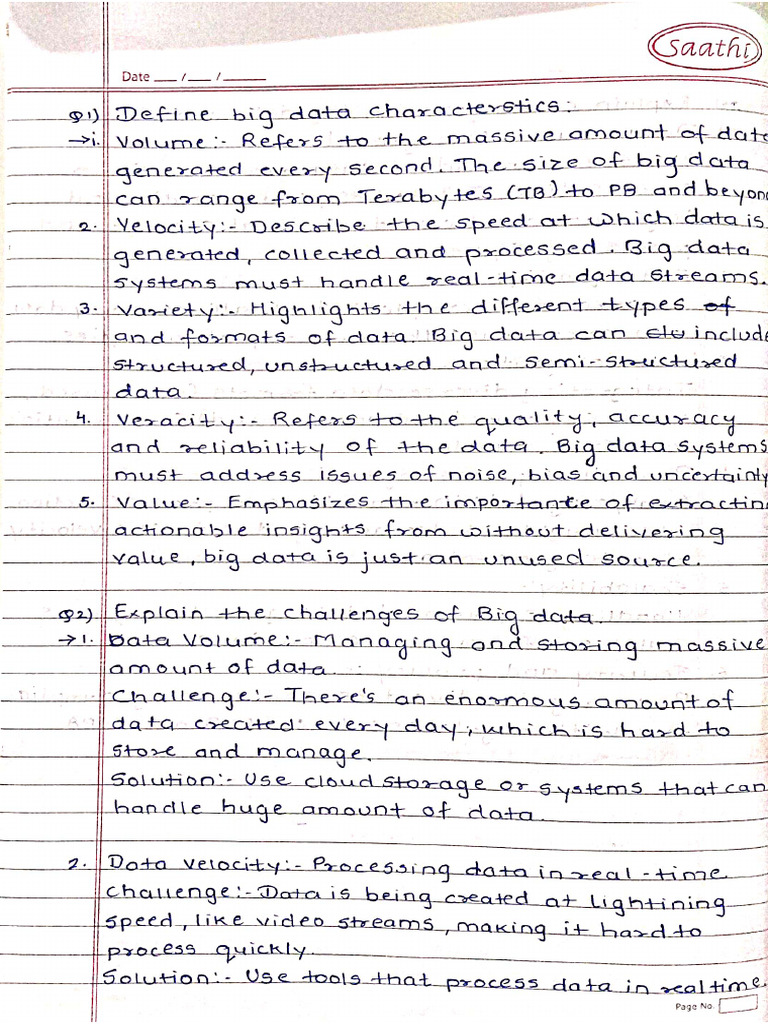 Saathi
Date ___ / ___ / _____
Q1) Define big data characterstics:
→i. Volume:- Refers to the massive amount of data
generated every second. The size of big data
can range from Terabytes (TB) to PB and beyond
2. Velocity:- Describe the speed at which data is
generated, collected and processed. Big data
systems must handle real-time data streams.
3. Variety:- Highlights the different types of
and formats of data. Big data can include
structured, unstructured and semi-structured
data.
4. Veracity:- Refers to the quality, accuracy
and reliability of the data. Big data systems
must address issues of noise, bias and uncertainty
5. Value:- Emphasizes the importance of extractin
actionable insights from without delivering
value, big data is just an unused source.
Q2) Explain the challenges of Big data.
→1. Data Volume:- Managing and storing massive
amount of data.
Challenge:- There's an enormous amount of
data created every day, which is hard to
store and manage.
Solution:- Use cloud storage or systems that can
handle huge amount of data.
2. Data velocity:- Processing data in real-time
Challenge:- Data is being created at lightining
speed, like video streams, making it hard to
process quickly.
Solution:- Use tools that process data in realtime.
Page No.